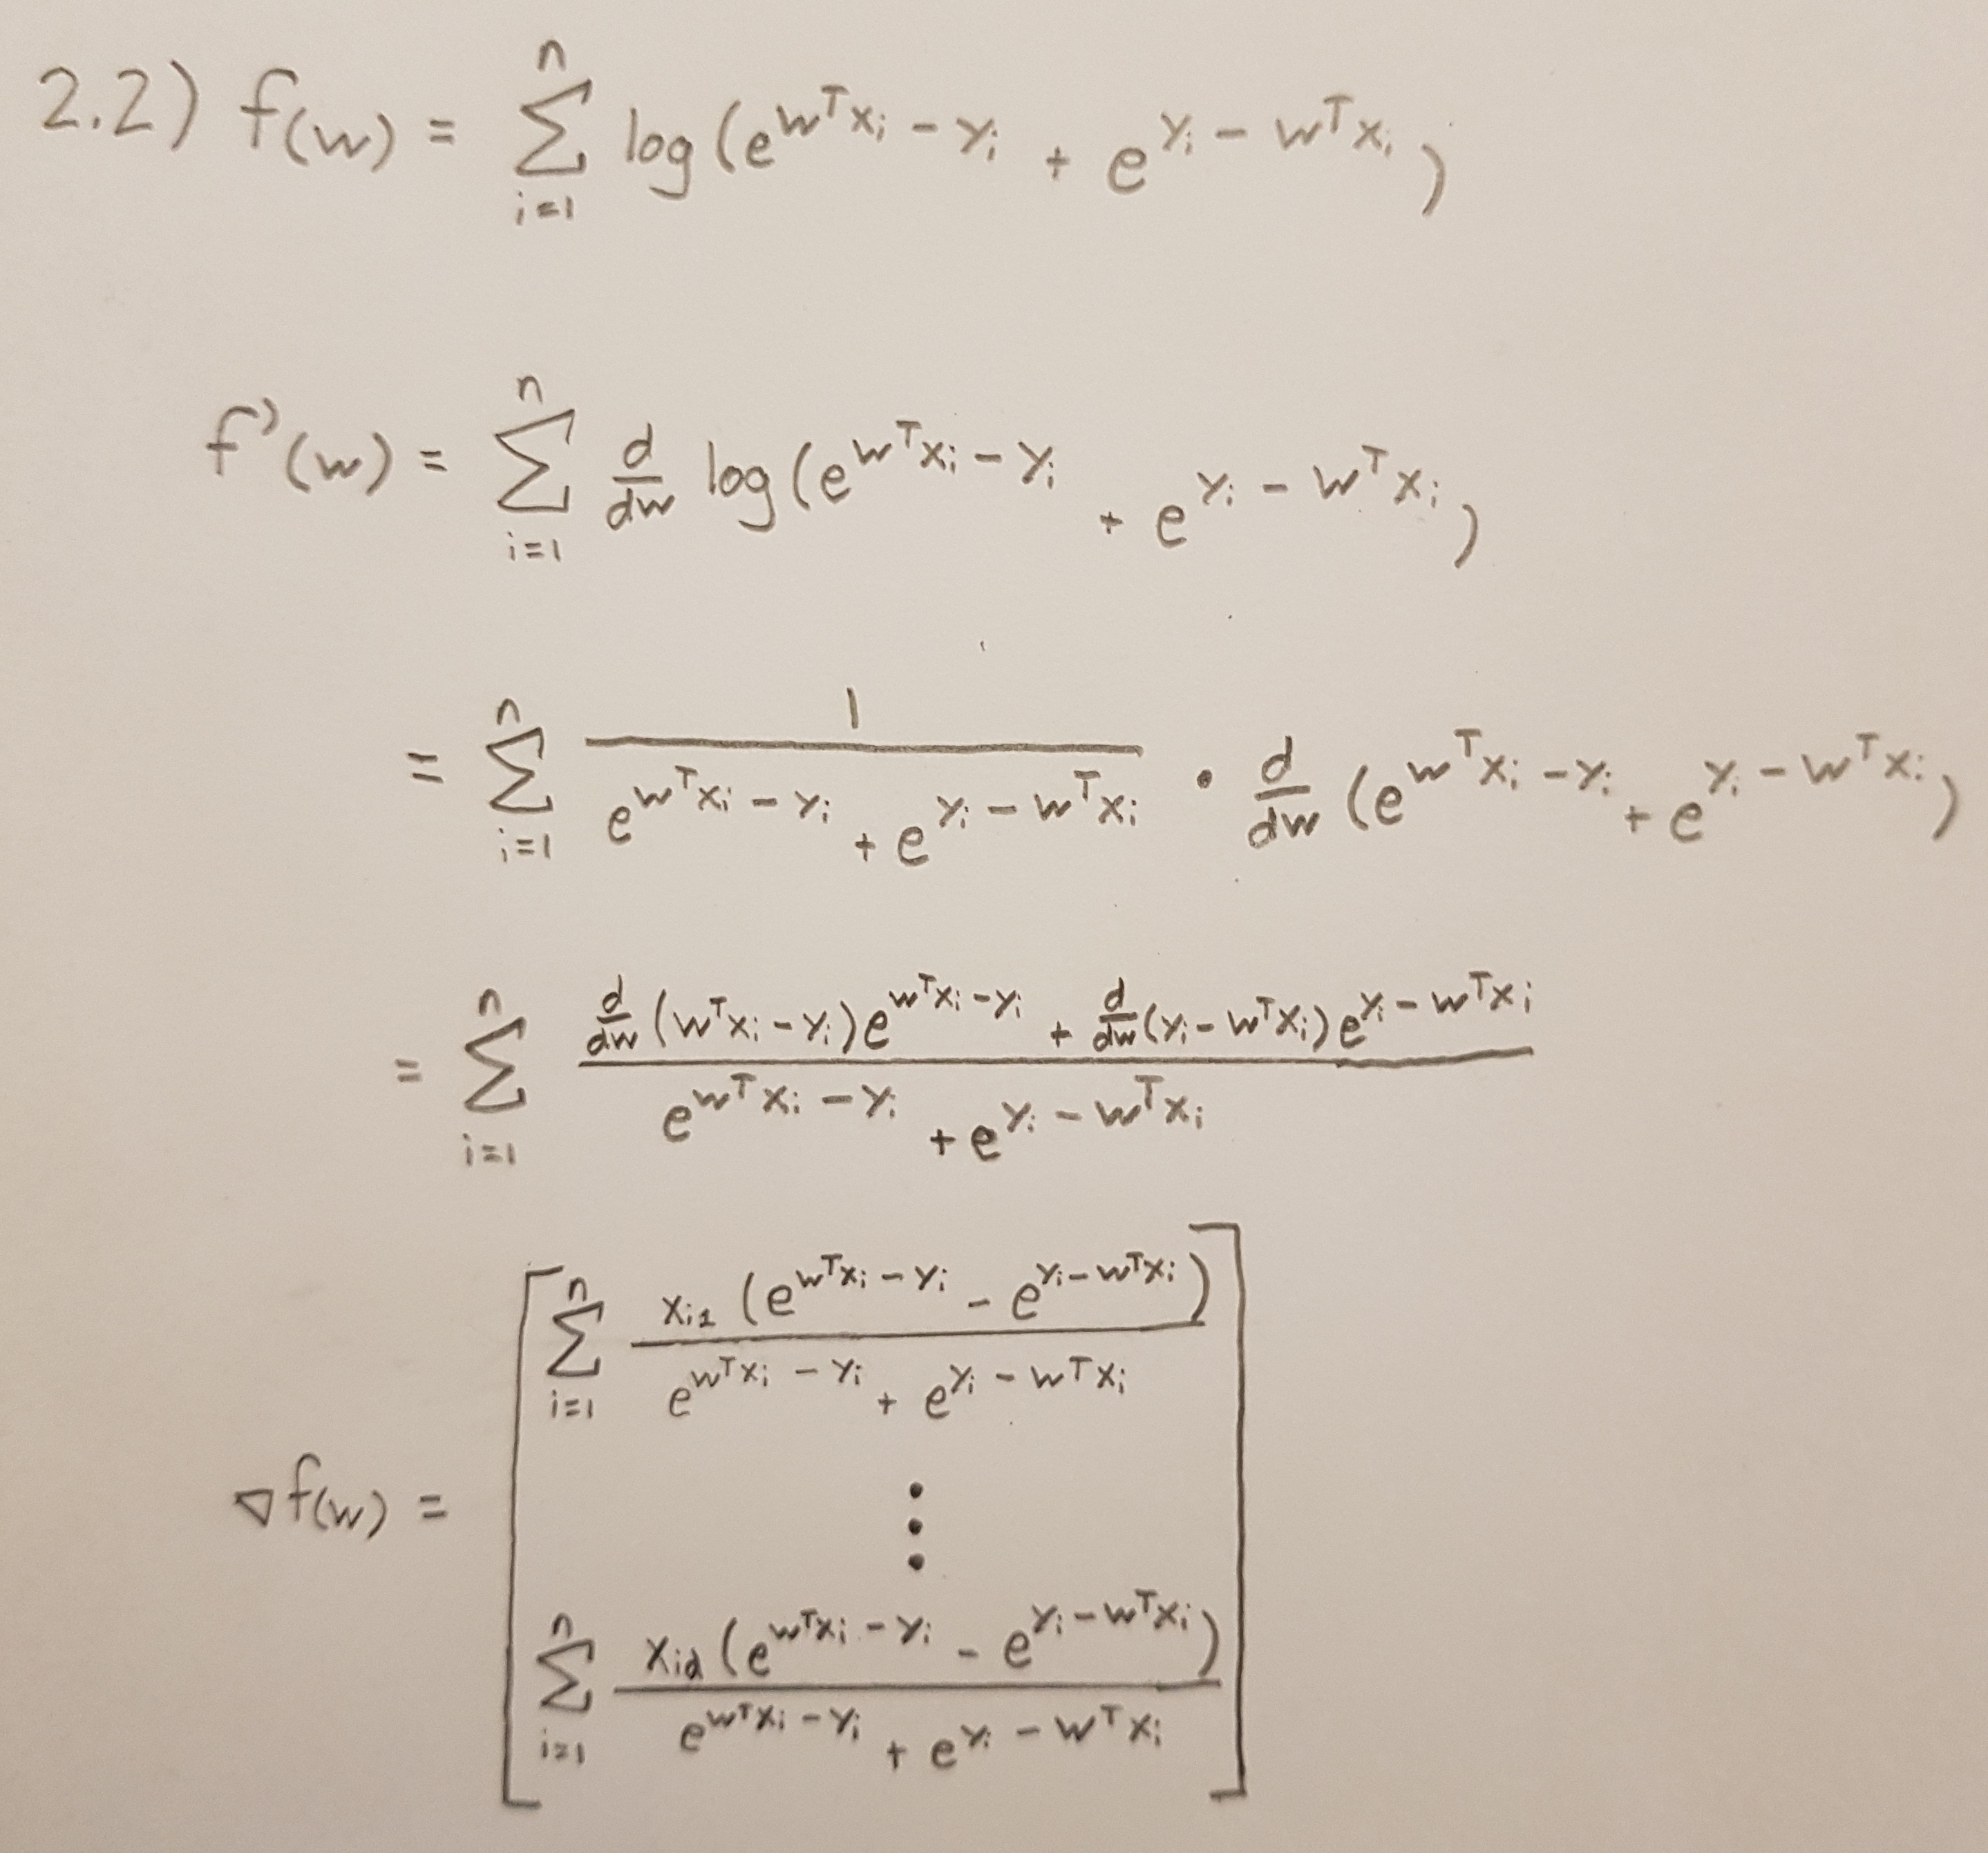 2.2) f(w) = \sum_{i=1}^{n} log(e^{w^T x_i - y_i} + e^{y_i - w^T x_i})
f'(w) = \sum_{i=1}^{n} \frac{d}{dw} log(e^{w^T x_i - y_i} + e^{y_i - w^T x_i})
= \sum_{i=1}^{n} \frac{1}{e^{w^T x_i - y_i} + e^{y_i - w^T x_i}} \cdot \frac{d}{dw} (e^{w^T x_i - y_i} + e^{y_i - w^T x_i})
= \sum_{i=1}^{n} \frac{\frac{d}{dw}(w^T x_i - y_i) e^{w^T x_i - y_i} + \frac{d}{dw}(y_i - w^T x_i) e^{y_i - w^T x_i}}{e^{w^T x_i - y_i} + e^{y_i - w^T x_i}}
\nabla f(w) = \begin{bmatrix} \sum_{i=1}^{n} \frac{x_{i1} (e^{w^T x_i - y_i} - e^{y_i - w^T x_i})}{e^{w^T x_i - y_i} + e^{y_i - w^T x_i}} \\ \vdots \\ \sum_{i=1}^{n} \frac{x_{id} (e^{w^T x_i - y_i} - e^{y_i - w^T x_i})}{e^{w^T x_i - y_i} + e^{y_i - w^T x_i}} \end{bmatrix}